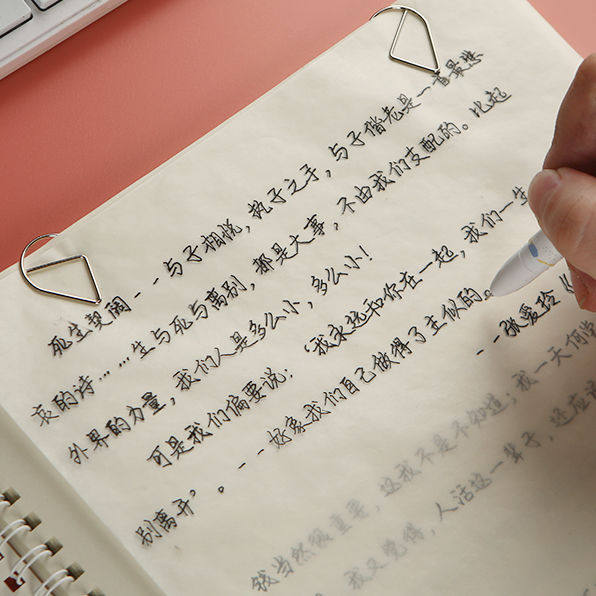 死生契阔--与子相悦,执子之手,与子偕老是一首最悲
哀的诗……生与死与离别,都是大事,不由我们支配的。比起
外界的力量,我们人是多么小,多么小!
可是我们偏要说:“我永远和你在一起,我们一生
别离开”。--好象我们自己做得了主似的。
--张爱玲《
钱当然很重要,这我不是不知道;我一天何尝
我又觉得,人活这一辈子,还应